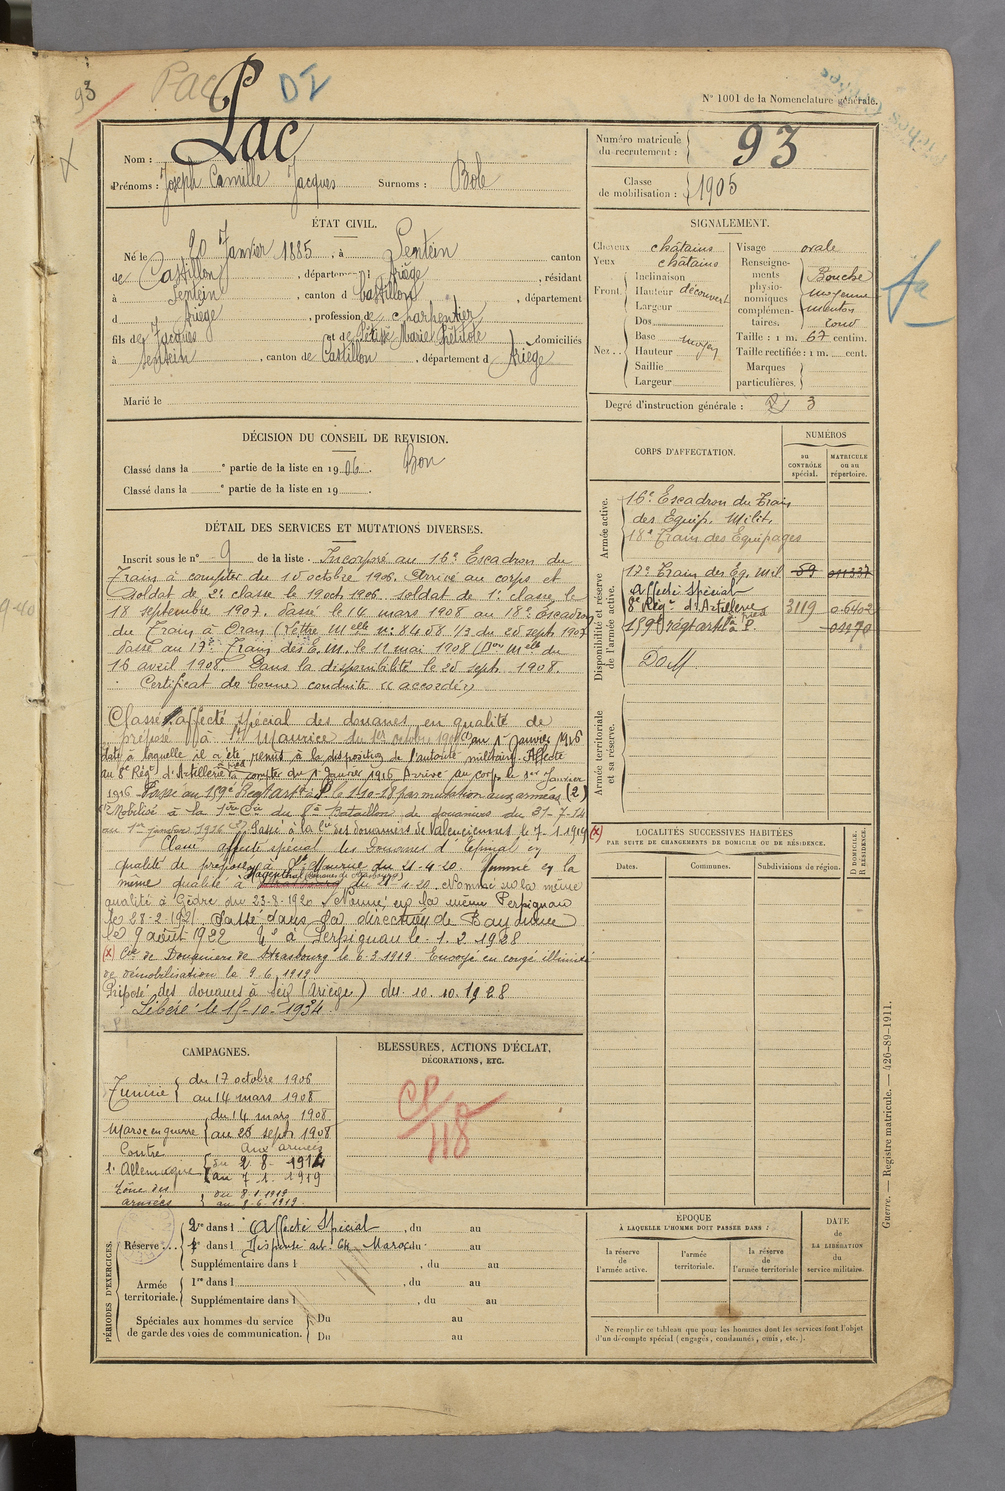 93
Pac
DI
N° 1001 de la Nomenclature générale.
Nom : Pac
Prénoms : Joseph Camille Jacques Surnoms : Bole
Numéro matricule du recrutement : 93
Classe de mobilisation : 1905
ÉTAT CIVIL.
Né le 20 Janvier 1885, à Sentein canton
de Castillon, département Ariège, résidant
à Sentein, canton d Castillon, département
d Ariège, profession de charpentier
fils de Jacques et de Marie domiciliés
à Sentein, canton de Castillon, département d Ariège
Marié le
SIGNALEMENT.
Cheveux châtains
Yeux châtains
Front Inclinaison
Hauteur découvert
Largeur
Nez Dos
Base
Hauteur moyen
Saillie
Largeur
Visage ovale
Renseignements physionomiques complémentaires. Bouche moyenne menton rond
Taille : 1 m. 67 centim.
Taille rectifiée : 1 m. cent.
Marques particulières.
Degré d'instruction générale : 3
DÉCISION DU CONSEIL DE REVISION.
Classé dans la e partie de la liste en 1906. Bon
Classé dans la e partie de la liste en 19 .
DÉTAIL DES SERVICES ET MUTATIONS DIVERSES.
Inscrit sous le n° 9 de la liste. Incorporé au 16e Escadron du
Train à compter du 10 octobre 1906. Arrivé au corps et
Soldat de 2e classe le 19 octe 1906. Soldat de 1e classe le
18 septembre 1907. Passé le 14 mars 1908 au 18e Escadron
du Train à Oran (Lettre Melle n° 8408 1/3 du 20 sept 1907
Passé au 17e Train des E. M. le 11 mai 1908 du
16 avril 1908. Dans la disponibilité le 25 sept. 1908.
Certificat de bonne conduite "accordé"
Classé affecté spécial des douanes en qualité de
préposé à St Maurice du 1er octobre au 1er Janvier 1916
date à laquelle il a été remis à la disposition de l'autorité militaire. Affecté
au 8e Régt d'Artillerie à compter du 1er Janvier 1916 Arrivé au corps le 1er Janvier
1916. Passé au 159e Regt art à P. le 1-10-18 par mutation aux armées (2)
Mobilisé à la 1ère Cie du 8e Bataillon de douaniers du 31-7-14
au 1er janvier 1916 (2) Passé à la Cie des douaniers de Valenciennes le 7.1.1919 (x)
Classé affecté spécial des Douanes d'Epinal en
qualité de préposé à St Maurice du 21-4-20. Nommé en la
même qualité à du 21-4-20. Nommé en la même
qualité à Gèdre du 23-8-1920. Nommé en la même Perpignan
le 28-2-1921. Passé dans la direction de Bayonne
le 9 août 1922 à Perpignan le 1.2.1928
(x) Cie de Douaniers de Strasbourg le 6.3.1919 Envoyé en congé illimité
de démobilisation le 9.6.1919
Préposé des douanes à Seix (Ariège) du 10.10.1928
Libéré le 15-10-1934.
CORPS D'AFFECTATION.
NUMÉROS
au CONTRÔLE spécial.
MATRICULE ou au répertoire.
Armée active.
16e Escadron du Train
des Equip. Milit.
18e Train des Equipages
Disponibilité et réserve de l'armée active.
17e Train des Eq. Mil 59 011337
Affecté Spécial
8e Régt d'Artillerie à pied 3119 0.6402
159e régt art à P. 01170
DoM
Armée territoriale et sa réserve.
LOCALITÉS SUCCESSIVES HABITÉES
PAR SUITE DE CHANGEMENTS DE DOMICILE OU DE RÉSIDENCE.
Dates. Communes. Subdivisions de région. D DOMICILE. R RÉSIDENCE.
CAMPAGNES.
Tunisie du 17 octobre 1906
au 14 mars 1908
Maroc en guerre du 14 mars 1908
au 25 sept 1908
Contre l'Allemagne Aux armées
du 2 8 1914
au 7 1 1919
Zône des armées du 8.1.1919
au 9.6.1919.
BLESSURES, ACTIONS D'ÉCLAT,
DÉCORATIONS, ETC.
CP/48
PÉRIODES D'EXERCICES.
Réserve : 1re dans l Affecté Spécial, du au
2e dans l Dispensé art. 64 Maroc du au
Supplémentaire dans l , du au
Armée territoriale. 1re dans l , du au
Supplémentaire dans l , du au
Spéciales aux hommes du service de garde des voies de communication. Du au
Du au
EPOQUE
À LAQUELLE L'HOMME DOIT PASSER DANS :
la réserve de l'armée active.
l'armée territoriale.
la réserve de l'armée territoriale
DATE DE LA LIBÉRATION du service militaire.
Ne remplir ce tableau que pour les hommes dont les services font l'objet
d'un décompte spécial (engagés, condamnés, omis, etc.).
Guerre. — Registre matricule. — 426-89-1911.